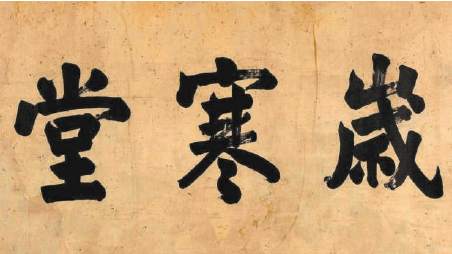 歲寒堂